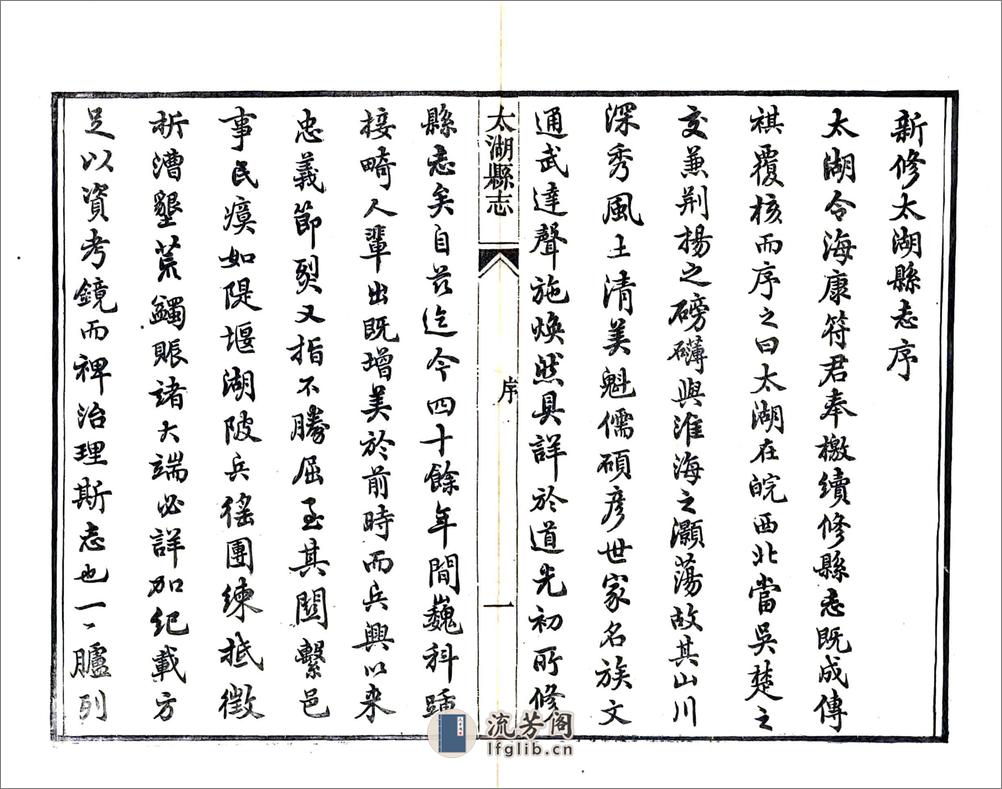 新修太湖縣志序
太湖令海康符君奉檄續修縣志既成傳
祺覆核而序之曰太湖在皖西北當吳楚之
交兼荆揚之磅礴與淮海之灝蕩故其山川
深秀風土清美魁儒碩彥世家名族文
通武達聲施煥然具詳於道光初所修
太湖縣志
序
一
縣志矣自茲迄今四十餘年間巍科踵
接畸人輩出既增美於前時而兵興以來
忠義節烈又指不勝屈至其關繫邑
事民瘼如隄堰湖陂兵徭團練抵徵
折漕墾荒蠲賑諸大端必詳加紀載方
足以資考鏡而裨治理斯志也一一臚列
流芳阁
lfglib.cn